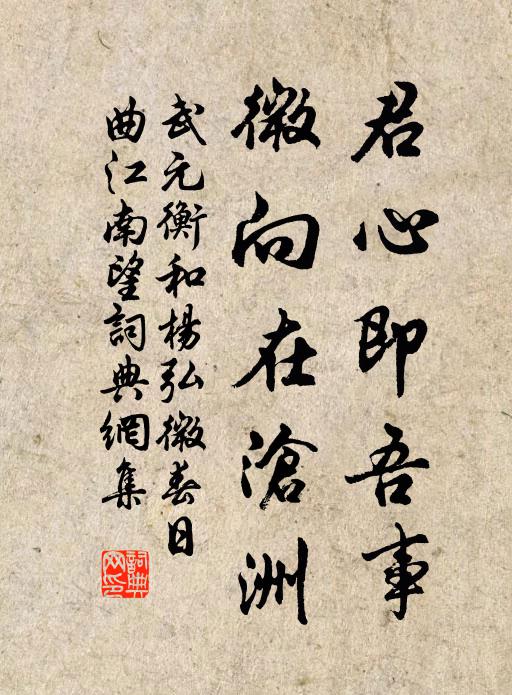 君心即吾事
微向在滄洲
武元衡和楊弘微春日
曲江南望詞典網集
詞典网印